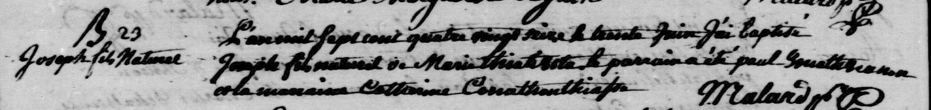 B 23
Joseph fils Naturel
L'an mil sept cent quatre vingt seize le trente Juin J'ai baptisé
Joseph fils naturel de Marie le parrain a été paul
et la marraine Catherine
Malard ptr